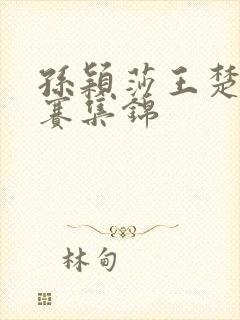 孫穎莎王楚
賽集錦
林甸